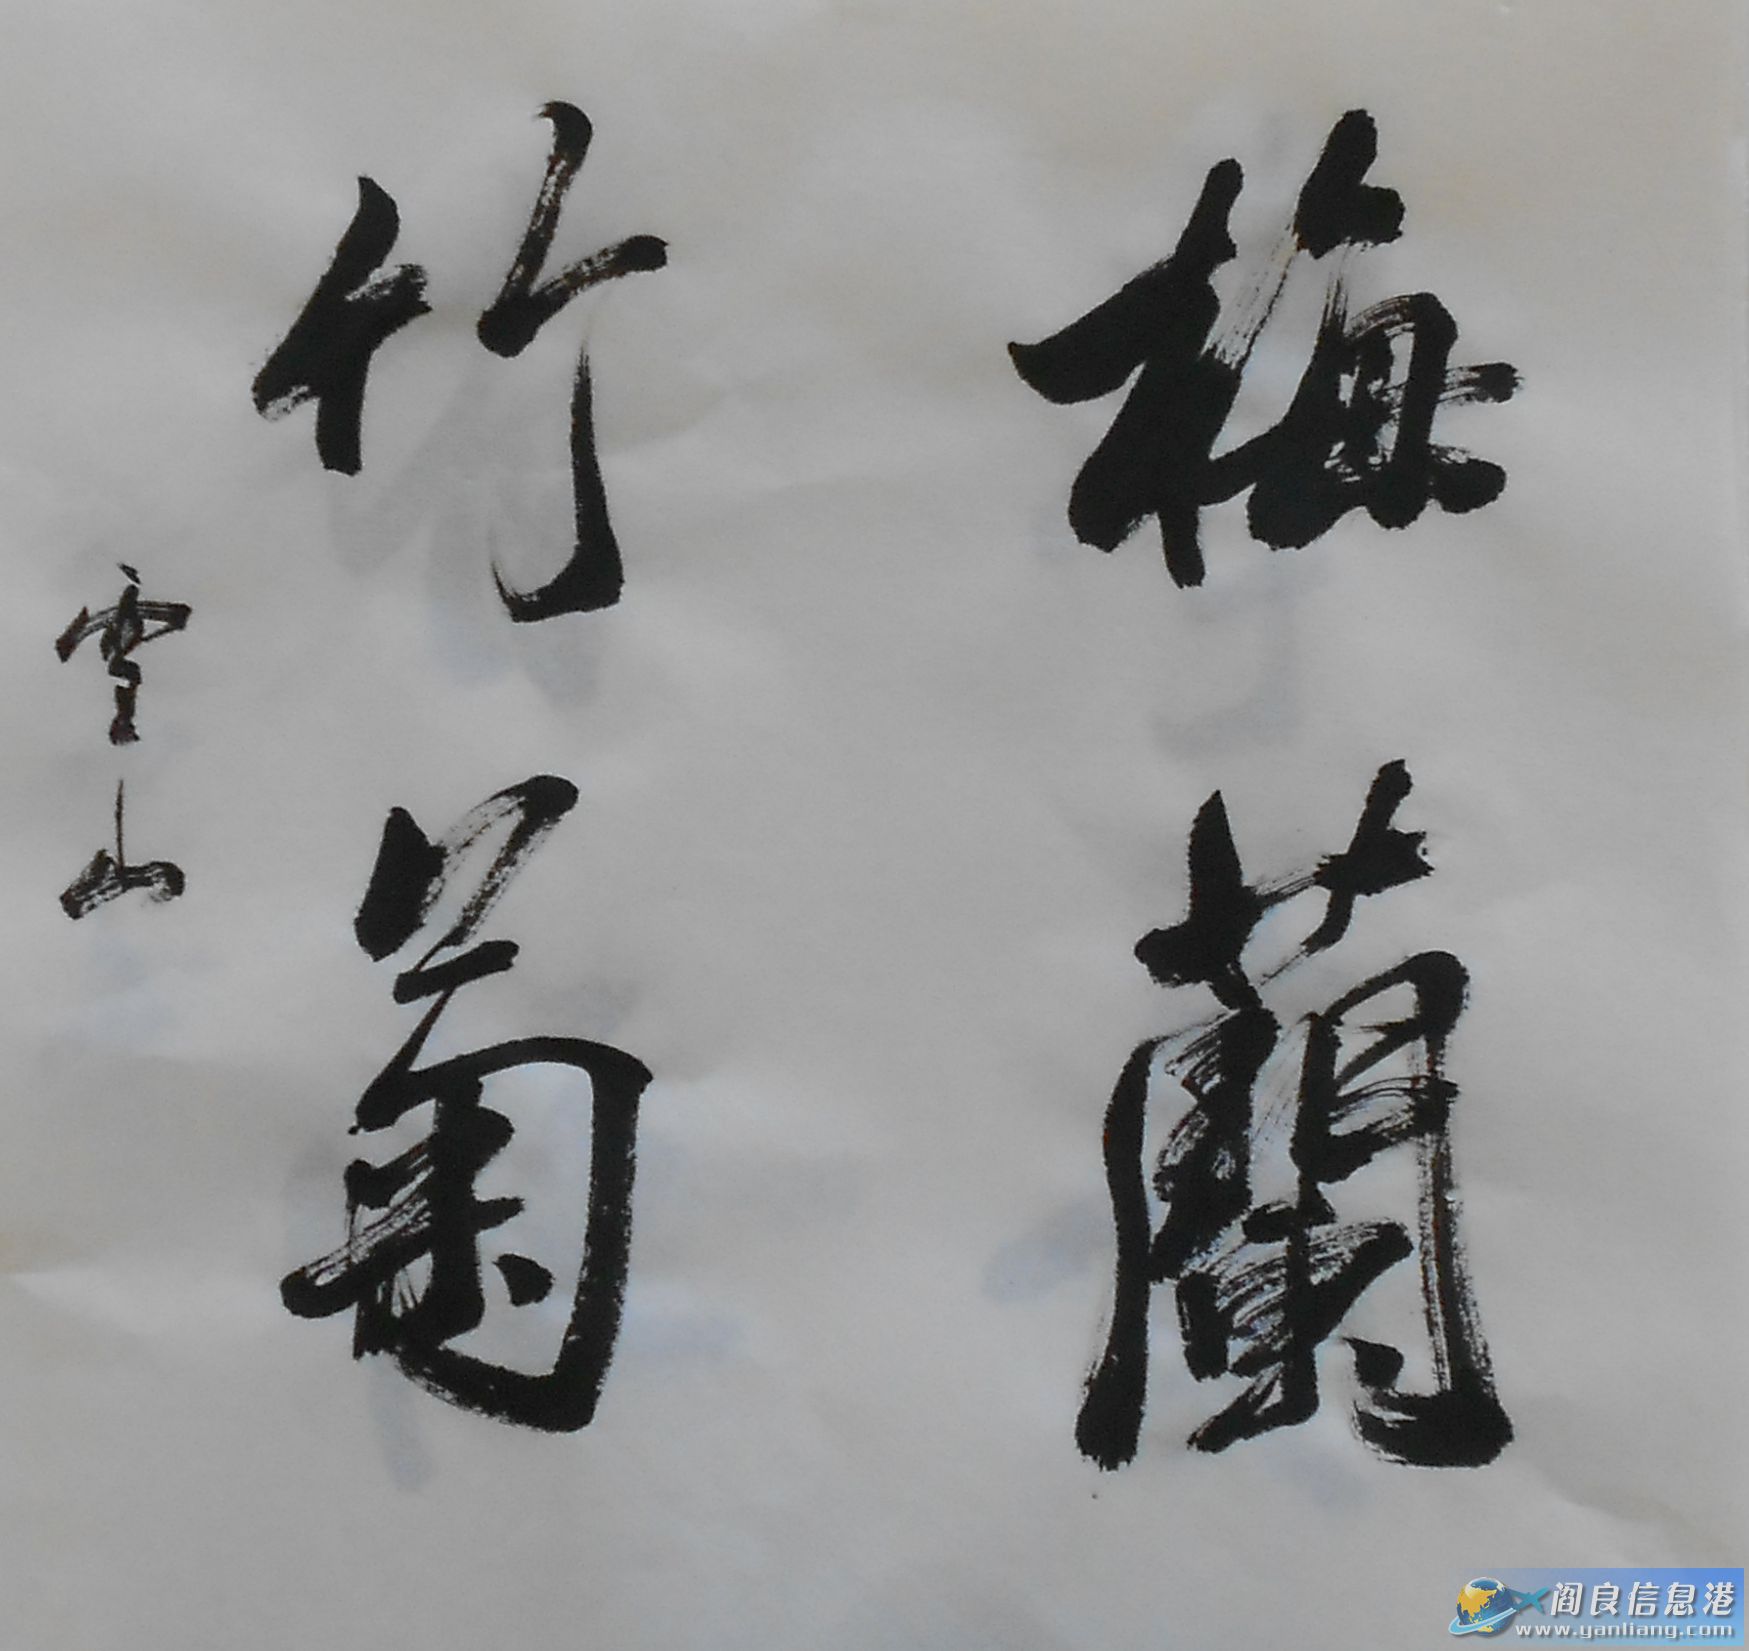 梅蘭
竹菊
雲山
阎良信息港
www.yanliang.com